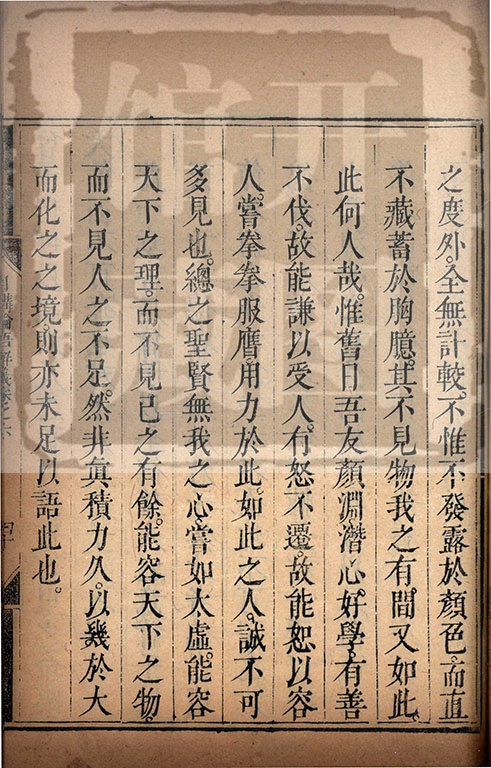 之度外。全無計較。不惟不發露於顏色。而直
不藏蓄於胸臆。其不見物我之有間。又如此。
此何人哉。惟舊日吾友顏淵。潛心好學。有善
不伐。故能謙以受人。有怒不遷。故能恕以容
人。嘗拳拳服膺用力於此。如此之人。誠不可
多見也。總之聖賢無我之心。嘗如太虛。能容
天下之理。而不見已之有餘。能容天下之物。
而不見人之不足。然非眞積力久。以幾於大
而化之之境。則亦未足以語此也。